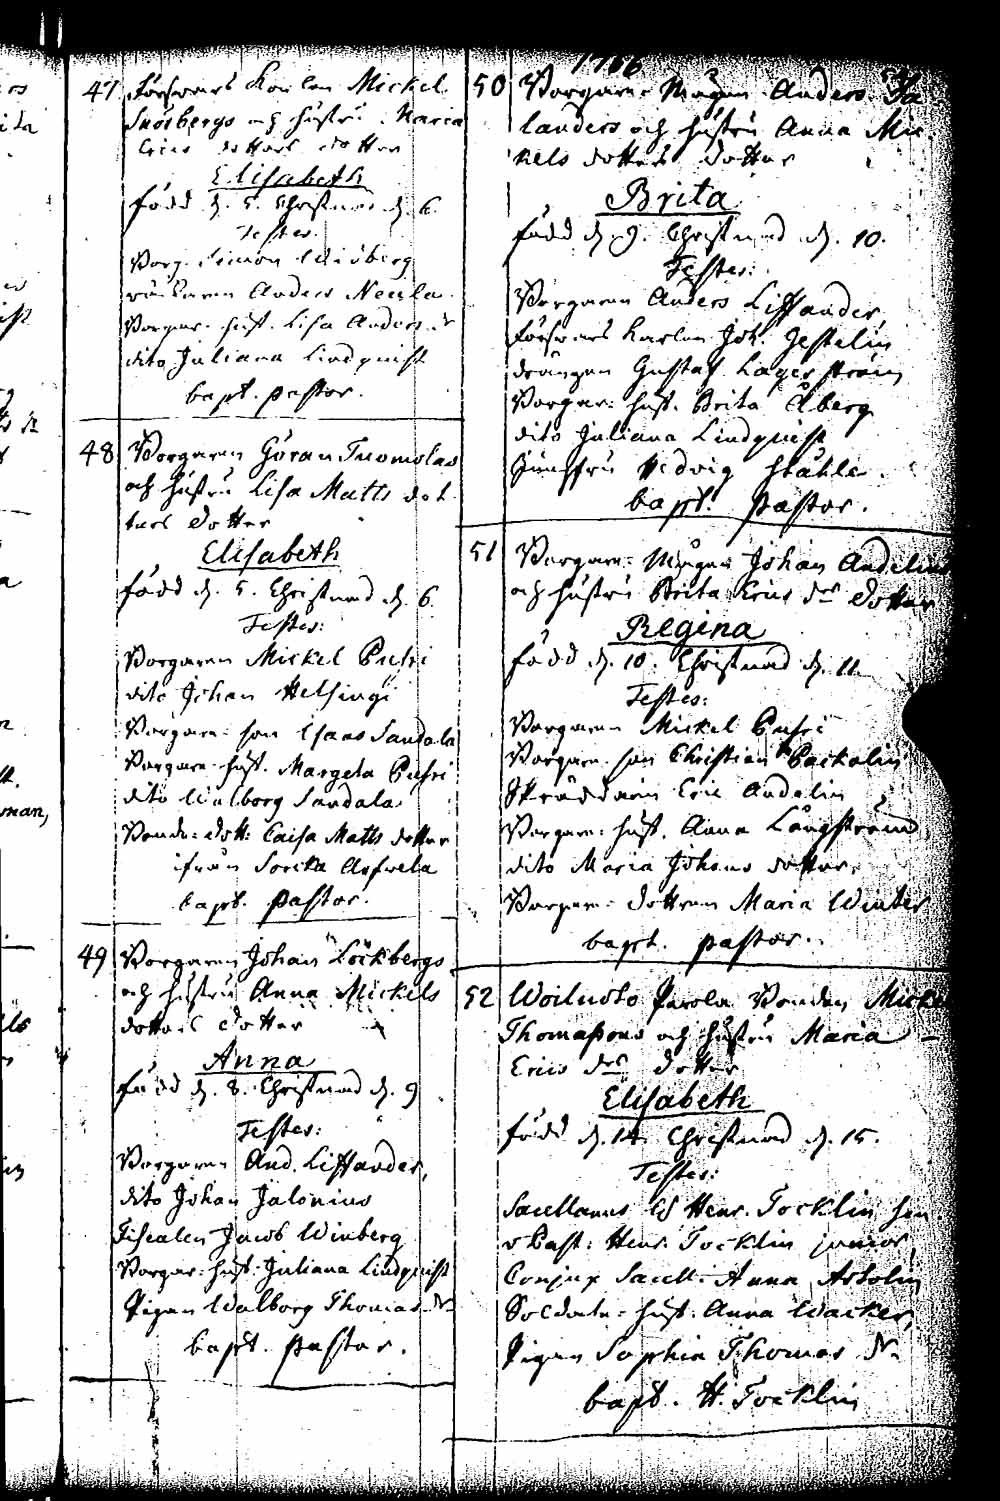 1766
47 Förswars Karlen Mickel
Snösbergs och hustru Maria
Erics dotters dotter
Elisabeth
född d. 5. Christnad d. 6.
Testes.
Borg. Simon Widberg
Anders Neula
Borgar. hust. Lisa Anders dr
dito Juliana Lindquist
bapt. pastor.
48 Borgaren Göran Tuomolas
och hustru Lisa Matts dot
ters dotter
Elisabeth
född d. 5. Christnad d. 6.
Testes:
Borgaren Mickel Pusri
dito Johan Helsingi
Borgare son Isaac Sandala
Borgare hust. Margeta Pusri
dito Walborg Sandala
Bonde: dott: Caisa Matts dotter
ifrån Sorika
bapt. pastor.
49 Borgaren Johan Löckbergs
och hustru Anna Mickels
dotters dotter
Anna
född d. 8. Christnad d. 9
Testes:
Borgaren And. Liffander,
dito Johan Jalonius
Fiscalen Jacob Winberg
Borgar. hust. Juliana Lindquist
Pigan Walborg Thomas dr
bapt. pastor.
50 Borgare Mågen Anders
landers och hustru Anna Mic-
kels dotters dotter
Brita
född d. 9. Christnad d. 10.
Testes:
Borgaren Anders Liffander,
Förswars Karlen Joh. Gestelin
drängen Gustaf Lagerström
Borgar. hust. Brita Åberg
dito Juliana Lindquist
Jungfru Hedvig Ståhle
bapt. pastor.
51 Borgare Mågen Johan Andelins
och hustru Brita Erics drs dotter
Regina
född d. 10. Christnad d. 11.
Testes:
Borgaren Mickel Pusri
Borgare son Christian Packalin
Skräddaren Eric Andelin
Borgare: hust. Anna Långström
dito Maria Johans dotter
Borgare dottren Maria Winter
bapt. pastor.
52 Woiluoto Parola Bonden Mickel
Thomassons och hustru Maria
Erics drs dotter
Elisabeth
född d. 14. Christnad d. 15.
Testes:
Sacellanus Henr. Tocklin sen
Past: Henr. Tocklin junior,
Conjux Sacell. Anna Artolin
Soldate hust. Anna Wacker,
Pigan Sophia Thomas dr
bapt. H. Tocklin